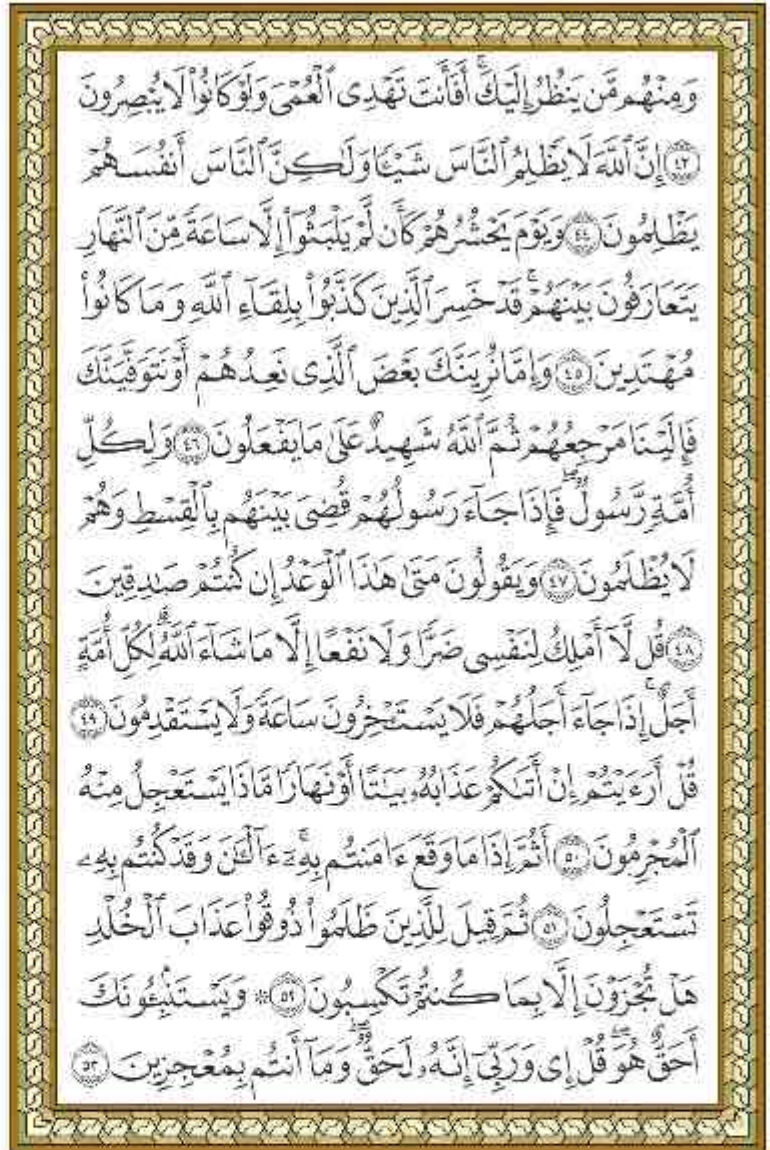 وَمِنْهُم مَّن يَنظُرُ إِلَيْكَ ۚ أَفَأَنتَ تَهْدِى ٱلْعُمْىَ وَلَوْ كَانُوا۟ لَا يُبْصِرُونَ
﴿٤٣﴾ إِنَّ ٱللَّهَ لَا يَظْلِمُ ٱلنَّاسَ شَيْـًٔا وَلَـٰكِنَّ ٱلنَّاسَ أَنفُسَهُمْ
يَظْلِمُونَ ﴿٤٤﴾ وَيَوْمَ يَحْشُرُهُمْ كَأَن لَّمْ يَلْبَثُوٓا۟ إِلَّا سَاعَةً مِّنَ ٱلنَّهَارِ
يَتَعَارَفُونَ بَيْنَهُمْ ۚ قَدْ خَسِرَ ٱلَّذِينَ كَذَّبُوا۟ بِلِقَآءِ ٱللَّهِ وَمَا كَانُوا۟
مُهْتَدِينَ ﴿٤٥﴾ وَإِمَّا نُرِيَنَّكَ بَعْضَ ٱلَّذِى نَعِدُهُمْ أَوْ نَتَوَفَّيَنَّكَ
فَإِلَيْنَا مَرْجِعُهُمْ ثُمَّ ٱللَّهُ شَهِيدٌ عَلَىٰ مَا يَفْعَلُونَ ﴿٤٦﴾ وَلِكُلِّ
أُمَّةٍ رَّسُولٌ ۖ فَإِذَا جَآءَ رَسُولُهُمْ قُضِىَ بَيْنَهُم بِٱلْقِسْطِ وَهُمْ
لَا يُظْلَمُونَ ﴿٤٧﴾ وَيَقُولُونَ مَتَىٰ هَـٰذَا ٱلْوَعْدُ إِن كُنتُمْ صَـٰدِقِينَ
﴿٤٨﴾ قُل لَّآ أَمْلِكُ لِنَفْسِى ضَرًّا وَلَا نَفْعًا إِلَّا مَا شَآءَ ٱللَّهُ ۗ لِكُلِّ أُمَّةٍ
أَجَلٌ ۚ إِذَا جَآءَ أَجَلُهُمْ فَلَا يَسْتَـْٔخِرُونَ سَاعَةً ۖ وَلَا يَسْتَقْدِمُونَ ﴿٤٩﴾
قُلْ أَرَءَيْتُمْ إِنْ أَتَىٰكُمْ عَذَابُهُۥ بَيَـٰتًا أَوْ نَهَارًا مَّاذَا يَسْتَعْجِلُ مِنْهُ
ٱلْمُجْرِمُونَ ﴿٥٠﴾ أَثُمَّ إِذَا مَا وَقَعَ ءَامَنتُم بِهِۦٓ ۚ ءَآلْـَٔـٰنَ وَقَدْ كُنتُم بِهِۦ
تَسْتَعْجِلُونَ ﴿٥١﴾ ثُمَّ قِيلَ لِلَّذِينَ ظَلَمُوا۟ ذُوقُوا۟ عَذَابَ ٱلْخُلْدِ
هَلْ تُجْزَوْنَ إِلَّا بِمَا كُنتُمْ تَكْسِبُونَ ﴿٥٢﴾ ۞ وَيَسْتَنۢبِـُٔونَكَ
أَحَقٌّ هُوَ ۖ قُلْ إِى وَرَبِّىٓ إِنَّهُۥ لَحَقٌّ ۖ وَمَآ أَنتُم بِمُعْجِزِينَ ﴿٥٣﴾